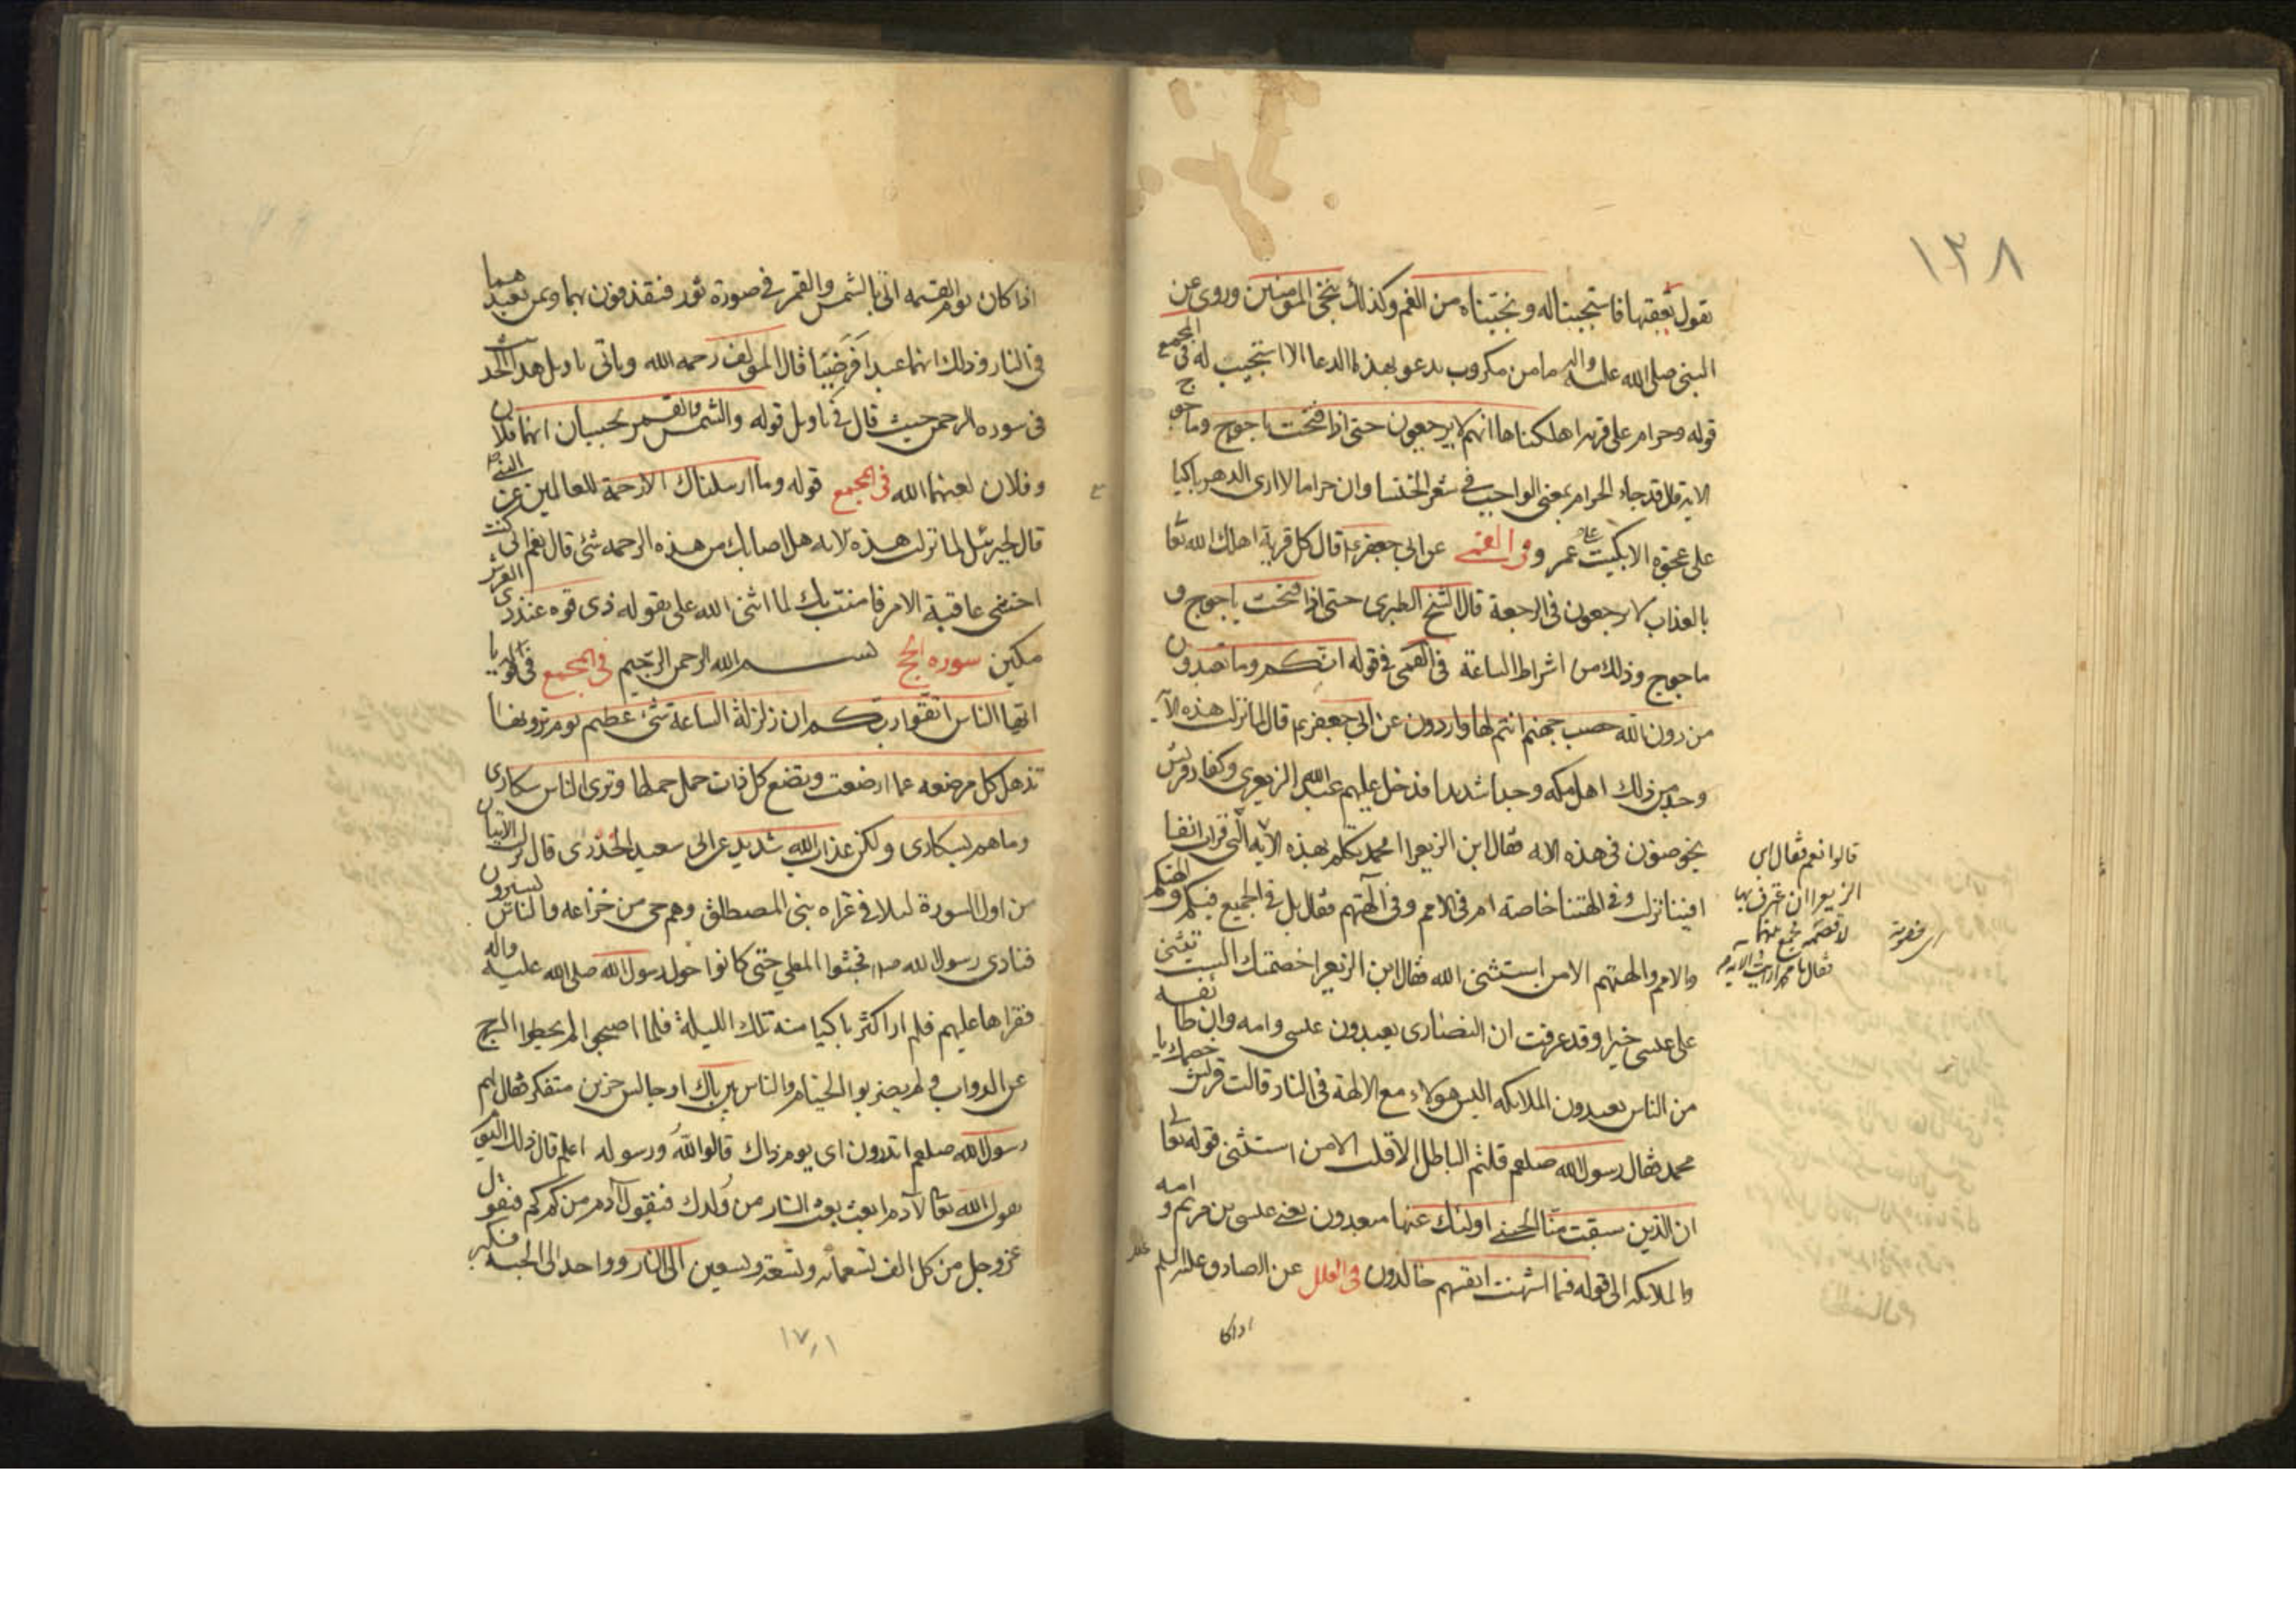 ١٣٨
تقول بعقتها فاستجبنا له ونجيناه من الغم وكذلك ننجي المؤمنين وروى عن
النبى صلى الله عليه واله ما من مكروب يدعو بهذا الدعا الا استجيب له فى المجمع
قوله وحرام على قرية اهلكناها انهم لا يرجعون حتى اذا فتحت ياجوج وماجوج
الاية قد جاء الحرام بمعنى الواجب فى شعر الخنسا وان حراما لا ارى الدهر باكيا
على عجوه الا بكيت على عمر وفى القمى عن ابى جعفر ع قال كل قرية اهلك الله تعا
بالعذاب لا يرجعون فى الرجعة قال الشيخ الطبرى حتى اذا فتحت ياجوج و
ماجوج وذلك من اشراط الساعة فى القمى فى قوله انكم وما تعبدون
من دون الله حصب جهنم انتم لها واردون عن ابى جعفر ع قال لما نزلت هذه الآية
وجد من ذلك اهل مكه وجدا شديدا فدخل عليهم عبد الله الزبعرى وكفار قريش
يخوضون فى هذه الايه فقال ابن الزبعرا امحمد تكلم بهذه الآية التى قرات انفا
افيننا نزلت وفى الهتنا خاصة ام فى الامم وفى آلهتهم فقال بل فى الجميع فيكم وفى الهتكم
والامم والهتهم الا من استثنى الله فقال ابن الزبعرا خصمتك الست تثنى
على عيسى خيرا وقد عرفت ان النصارى يعبدون عيسى وامه وان طائفه
من الناس يعبدون الملائكه اليس هولاء مع الالهة فى النار قالت قريش خصمك يا
محمد فقال رسول الله صلعم قلتم الباطل الا قلت الا من استثنى قوله تعا
ان الذين سبقت منا الحسنى اولئك عنها مبعدون يعنى عيسى بن مريم وامه
والملائكه الى قوله فيما اشتهت انفسهم خالدون فى العلل عن الصادق عليه السلم
اذا كا
قالوا نعم فقال ابن
الزبعرا ان اعترف بها
فقال يا محمد ارايت الآية
اذا كان يوم القيمه اتى بالشمس والقمر فى صورة ثور فنقذفون بهما وبمن يعبدهما
فى النار وذلك انهما عبدا فرضيا قال المولف رحمه الله وياتى تاويل هذا الحديث
فى سوره الرحمن حيث قال فى تاويل قوله والشمس والقمر بحسبان انهما فلان
وفلان لعنهما الله فى المجمع قوله وما ارسلناك الا رحمة للعالمين عن النبى ص
قال لجبرئيل لما نزلت هذه الايه هل اصابك من هذه الرحمه شئ قال نعم انى كنت
اخشى عاقبة الامر فامنت بك لما اثنى الله على بقوله ذى قوه عند ذى العرش
مكين سوره الحج بسم الله الرحمن الرحيم فى المجمع فى قوله يا
ايها الناس اتقوا ربكم ان زلزلة الساعة شئ عظيم يوم ترونها
تذهل كل مرضعه عما ارضعت وتضع كل ذات حمل حملها وترى الناس سكارى
وما هم بسكارى ولكن عذاب الله شديد عن ابى سعيد الخدرى قال نزلت الايتان
من اول السورة ليلا فى غزاه بنى المصطلق وهم حى من خزاعه والناس يسيرون
فنادى رسول الله ص فحثوا المطى حتى كانوا حول رسول الله صلى الله عليه واله
فقراها عليهم فلم ار اكثر باكيا منه تلك الليلة فلما اصبحوا لم يحطوا السرج
عن الدواب ولم يضربوا الخيام والناس بين باك او جالس حزين متفكر فقال لهم
رسول الله صلعم اتدرون اى يوم ذاك قالوا الله ورسوله اعلم قال ذلك اليوم
يقول الله تعا لآدم ابعث بعث النار من ولدك فيقول آدم من كم كم فيقول
عز وجل من كل الف تسعمائه وتسعة وتسعين الى النار وواحد الى الجنه فكبر
١٧١